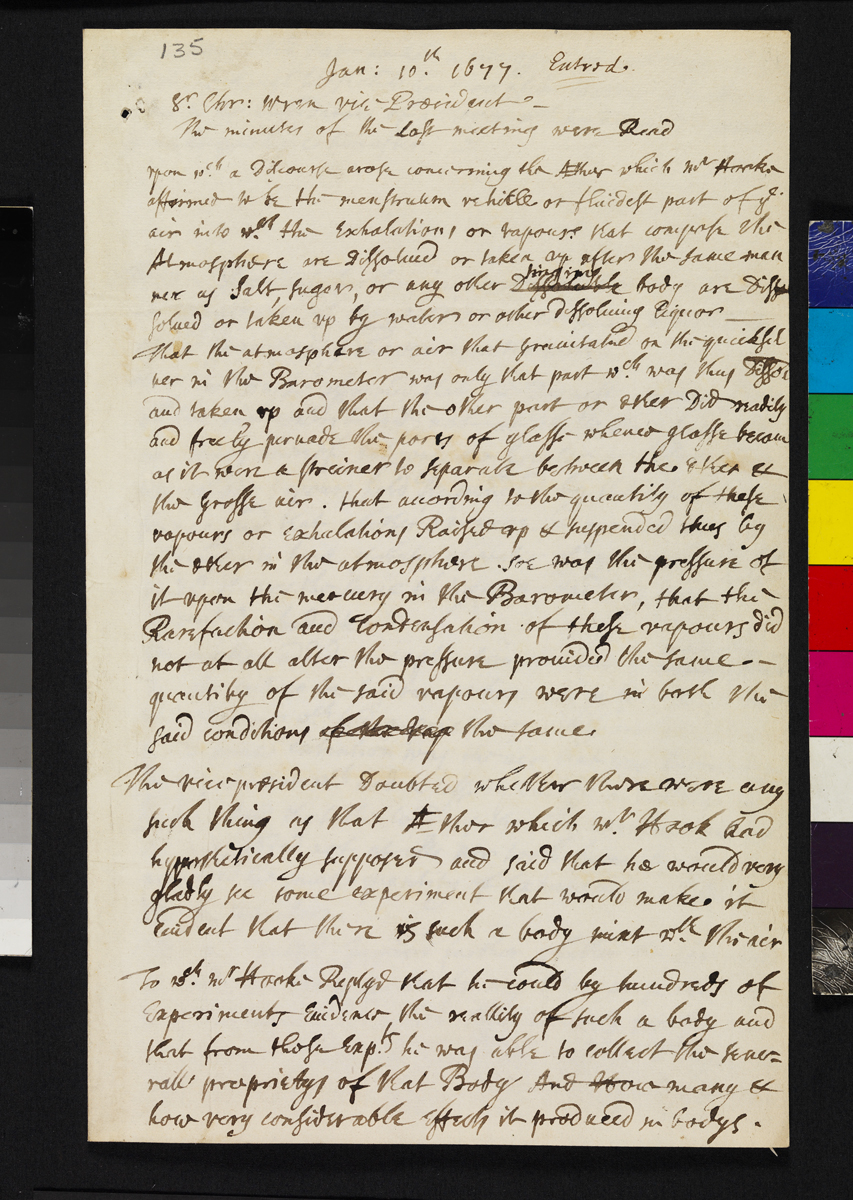 135
Jan: 10.th 1677. Entred.
Sr. Chr: Wren vice Præsident. -
The minutes of the last meeting were Read
vpon wch. a Discourse arose concerning the Æther which mr Hooke
affirmed to be the menstruum vehicle or fluidest part of ye.
air into wch the Exhalations or vapours that compose the
Atmosphere are Dissolued or taken vp after the same man
ner as Salt, sugar, or any other body are Disso
solued or taken vp by water or other dissoluing Liquor —
That the atmosphere or air that Grauitated on the quicksil
uer in the Barometer was only that part wch was thus Dissol
and taken vp and that the other part or ether Did readily
and freely peruade the pores of glasse whence glasse became
as it were a streiner to separate between the ether &
the Grosse air. that according to the quantity of these
vapours or exhalations Raised vp & suspended thus by
the ether in the atmosphere. soe was the pressure of
it vpon the mercury in the Barometer, that the
Rarefaction and Condensation of these vapours did
not at all alter the pressure prouided the same -
quantity of the said vapours were in both the
said conditions of the vap the same.
The vice præsident Doubted whether there were any
such thing as that Æther which mr. Hook had
hypothetically supposed and said that he would very
gladly see some experiment that would make it
euident that there is such a body mixt wth. the air
To wch. mr Hooke Replyd that he could by hundreds of
Experiments Euidence the reallity of such a body and
that from those Expts. he was able to collect the seue-
rall proprietys of that Body And How many &
how very considerable effects it produced in bodys.